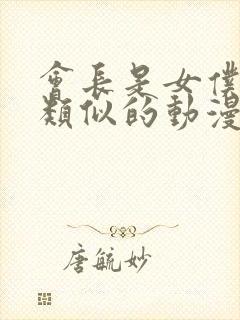 會長是女僕
類似的動漫
唐毓妙